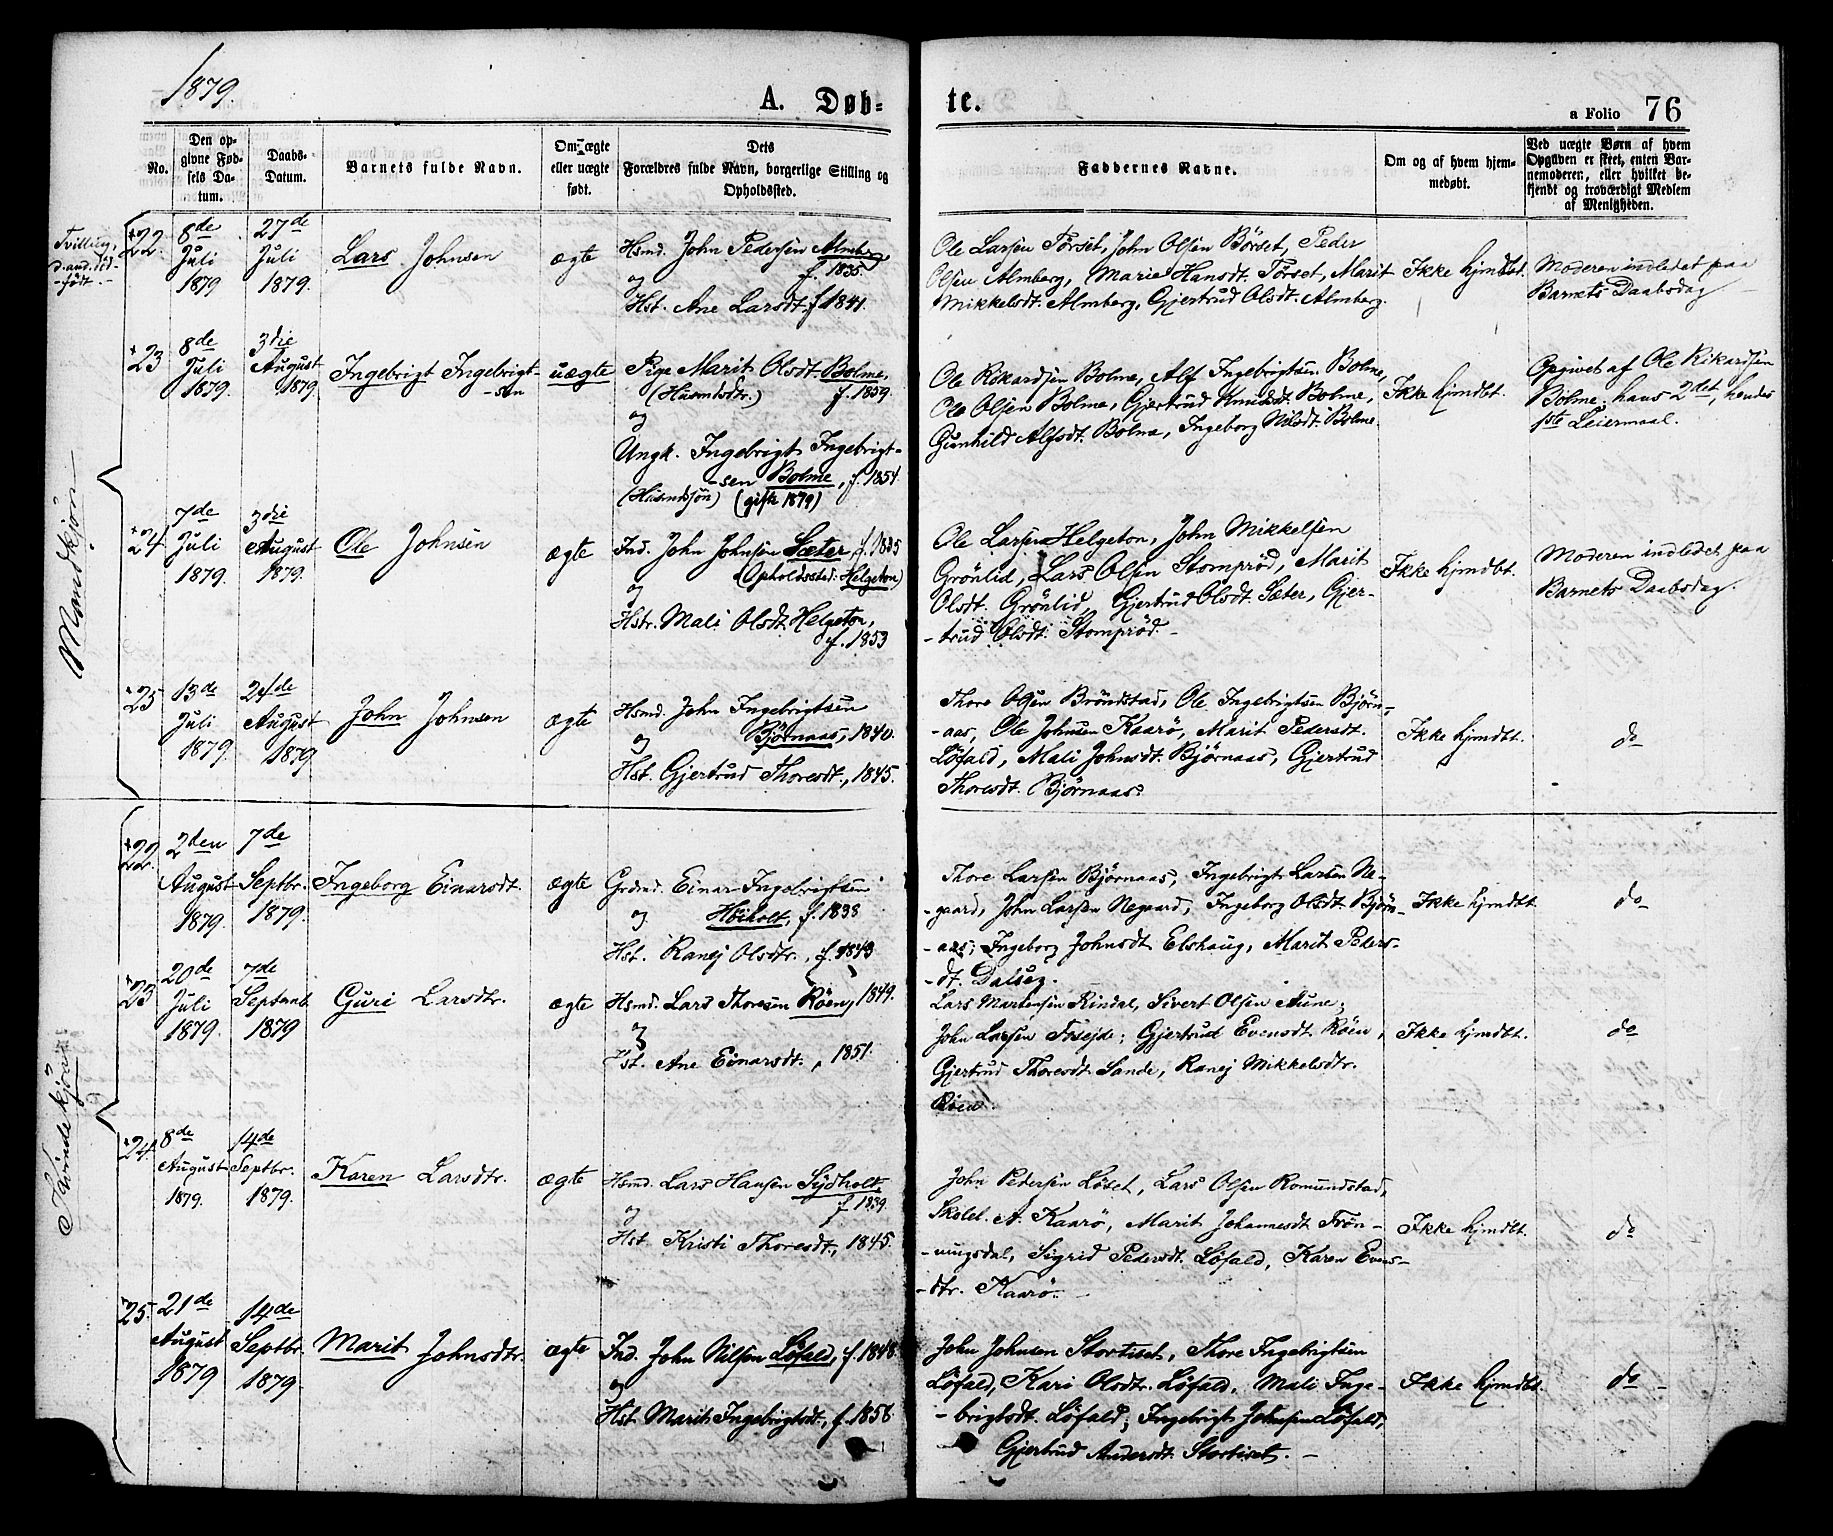 1879.
A. Døb-
te.
a Folio 76
No.
Den op-
givne Fød-
sels Da-
tum.
Daabs-
Datum.
Barnets fulde Navn.
Om ægte
eller uægte
født.
Dets
Forældres fulde Navn, borgerlige Stilling og
Opholdssted.
Faddernes Navne.
Om og af hvem hjem-
medøbt.
Ved uægte Børn af hvem
Opgiven er skeet, enten Bar-
nemoderen, eller hvilket be-
kjendt og troværdigt Medlem
af Menigheden.
Mandkjøn
Tvilling,
d. and. død-
-født. -
22.
8de
Juli
1879
27de
Juli
1879.
Lars Johnsen
ægte
Hsmd. John Pedersen Almberg
f. 1835
og
Hst. Ane Larsdt. f 1841.
Ole Larsen Törset, John Olsen Börset, Peder
Olsen Almberg, Marie Hansdt. Törset, Marit
Mikkelsdt. Almberg, Gjertrud Olsdt. Almberg.
Ikke hjmdbt.
Moderen indledet paa
Barnets Daabsdag
23
8de
Juli
1879.
3die
August
1879
Ingebrigt Ingebrigt-
-sen
uægte
Pige Marit Olsdt. Bolme,
(Husmdsdtr.) f. 1859.
og
Ungk. Ingebrigt Ingebrigt-
-sen Bolme, f. 1854
(Husmdssön) (gift 1879)
Ole Rikardsen Bolme, Alf Ingebrigtsen Bolme,
Ole Olsen Bolme, Gjertrud Knudsdt. Bolme,
Gunhild Alfsdt. Bolme, Ingeborg Nilsdt. Bolme.
Ikke hjmdbt.
Opgivet af Ole Rikardsen
Bolme; hans 2det, hendes
1ste Leiermaal.
24
7de
Juli
1879.
3die
August
1879.
Ole Johnsen
ægte
Ind. John Johnsen Sæter, f. 1835
(Opholdssted: Helgeton)
og
Hstr. Mali Olsdt. Helgeton,
f. 1853
Ole Larsen Helgeton, John Mikkelsen
Grönlid, Lars Olsen Stomprød, Marit
Olsdt. Grönlid, Gjertrud Olsdt. Sæter, Gjer-
-trud Olsdt. Stomprød. -
Ikke hjmdbt.
Moderen indledet paa
Barnets Daabsdag.
25
13de
Juli
1879.
24de
August
1879
John Johnsen
ægte
Hsmd. John Ingebrigtsen
og Bjørnaas, 1840.
Hst. Gjertrud Thoresdt., 1845.
Thore Olsen Bröndstad, Ole Ingebrigtsen Bjørn-
-aas, Ole Johnsen Kaarö, Marit Pedersdt.
Löfald, Mali Johnsdt. Bjørnaas, Gjertrud
Thoresdt. Bjørnaas.
Ikke hjmdbt.
do
Kvindekjøn
22.
2den
August
1879.
7de
Septbr.
1879.
Ingeborg Einarsdt.
ægte
Grdmd. Einar Ingebrigtsen
og Höiholt, f. 1838
Hst. Ranej Olsdtr., f. 1843
Thore Larsen Bjørnaas, Ingebrigt Larsen Ne-
-gaard, John Larsen Negaard, Ingeborg Olsdt. Bjørn-
-aas; Ingeborg Johnsdt Elshaug, Marit Peders-
-dt. Dalseg.
Ikke hjmdbt.
do
23
20de
Juli
1879.
7de
Septemb.
1879
Guri Larsdtr.
ægte
Hsmd. Lars Thoresen Röen, 1849.
og
Hst. Ane Einarsdt., 1851.
Lars Martensen Rindal, Sivert Olsen Aune;
John Larsen Forsejde; Gjertrud Evensdt. Röen,
Gjertrud Thoresdt. Sande, Ranej Mikkelsdtr.
Röen.
Ikke hjmdbt.
do
24.
8de
August
1879.
14de
Septbr.
1879.
Karen Larsdtr.
ægte
Hsmd. Lars Hansen Sydholt,
f 1839.
og
Hst. Kristi Thoresdt., 1845.
John Pedersen Löset, Lars Olsen Romundstad,
Skolel. A. Kaarö, Marit Johannesdt. Trön-
-ningsdal, Sigrid Pedersdt. Löfald, Karen Evens-
-dtr. Kaarö. -
Ikke hjmdbt.
do
25.
21de
August
1879
14de
Septbr.
1879.
Marit Johnsdtr.
ægte
Ind. John Nilsen Löfald, f. 1848.
og
Hst. Marit Ingebrigtsdt., f. 1856
John Johnsen Stortiset, Thore Ingebrigtsen
Löfald, Kari Olsdtr. Löfald, Mali Inge-
-brigtsdt. Löfald; Ingebrigt Johnsen Löfald,
Gjertrud Andersdt. Stortiset. -
Ikke hjmdbt.
do -